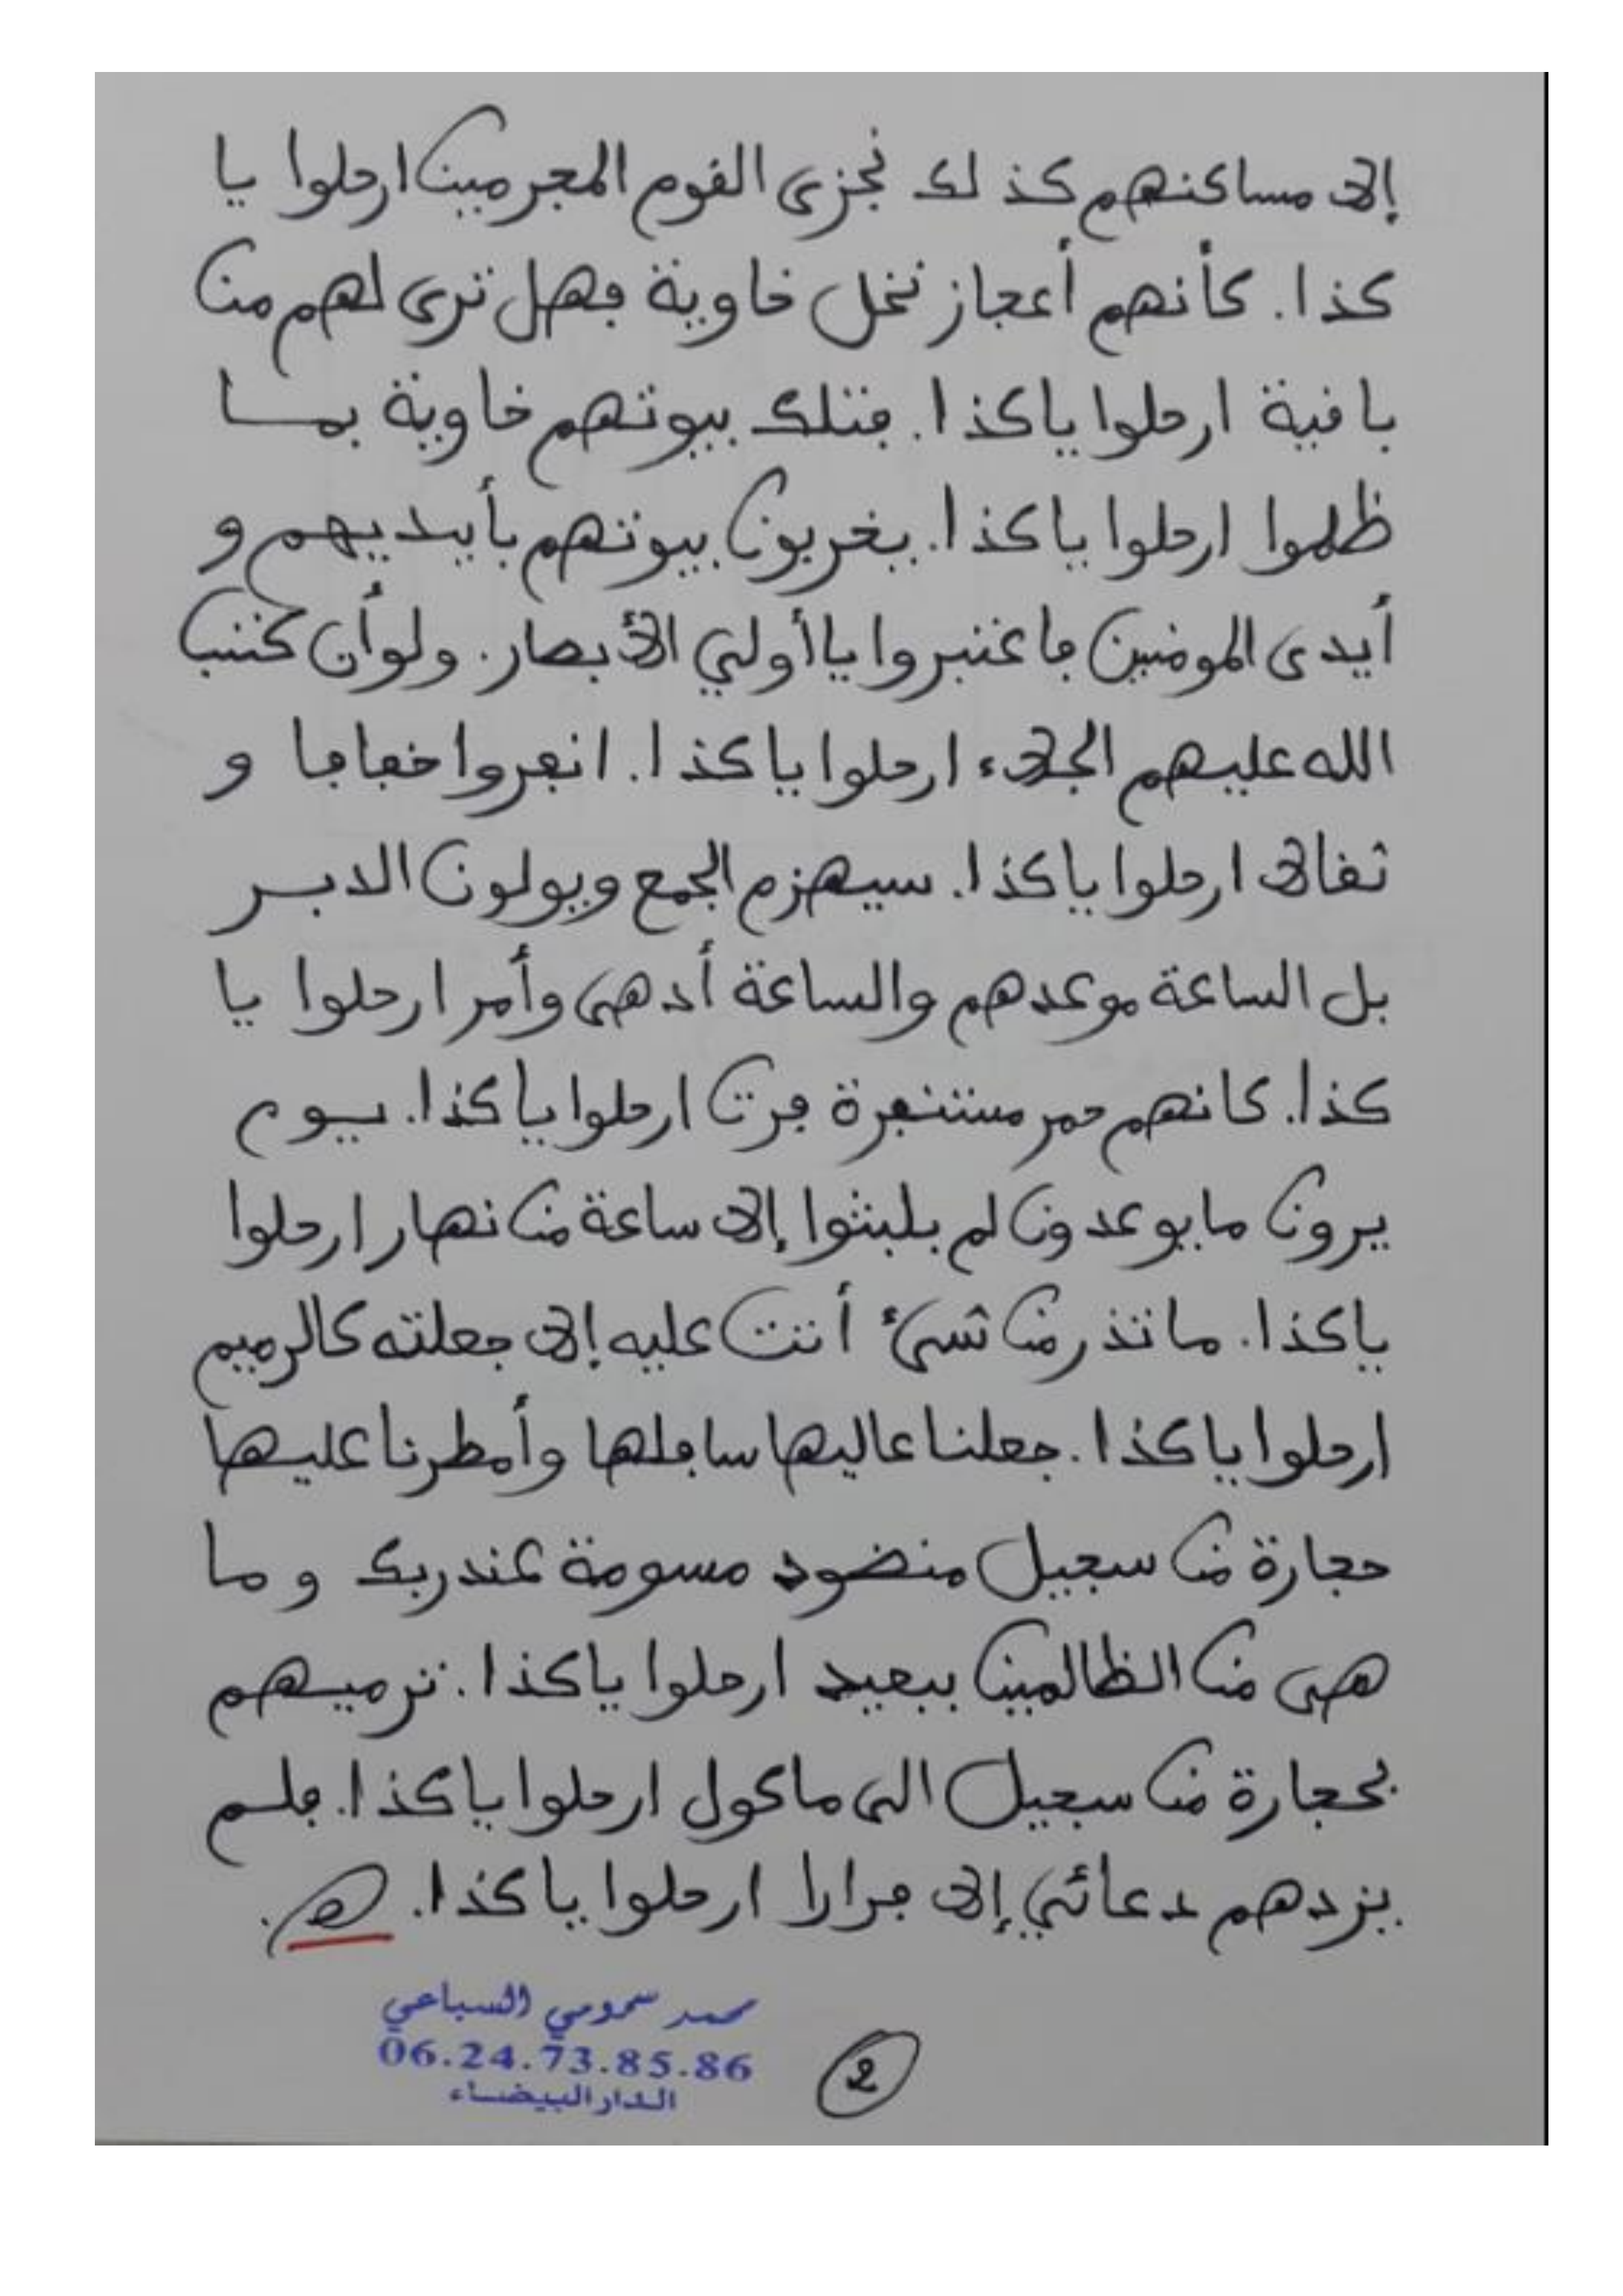 إلا مساكنهم كذلك نجزى القوم المجرمين ارحلوا يا
كذا. كأنهم أعجاز نخل خاوية فهل ترى لهم من
باقية ارحلوا يا كذا. فتلك بيوتهم خاوية بما
ظلموا ارحلوا يا كذا. يخربون بيوتهم بأيديهم و
أيدى المومنين فاعتبروا يا أولي الأبصار. ولو أن كتب
الله عليهم الجلاء ارحلوا يا كذا. انفروا خفافا و
ثقالا ارحلوا يا كذا. سيهزم الجمع ويولون الدبر
بل الساعة موعدهم والساعة أدهى وأمر ارحلوا يا
كذا. كانهم حمر مستنفرة فرت ارحلوا يا كذا. يوم
يرون ما يوعدون لم يلبثوا إلا ساعة من نهار ارحلوا
يا كذا. ما تذر من شىء أتت عليه إلا جعلته كالرميم
ارحلوا يا كذا. جعلنا عاليها سافلها وأمطرنا عليها
حجارة من سجيل منضود مسومة عند ربك وما
هى من الظالمين ببعيد ارحلوا يا كذا. ترميهم
بحجارة من سجيل الى ماكول ارحلوا يا كذا. فلم
يزدهم دعائي إلا فرارا ارحلوا يا كذا. اهـ.
محمد سمومي السباعي
06.24.73.85.86
الدار البيضاء
2